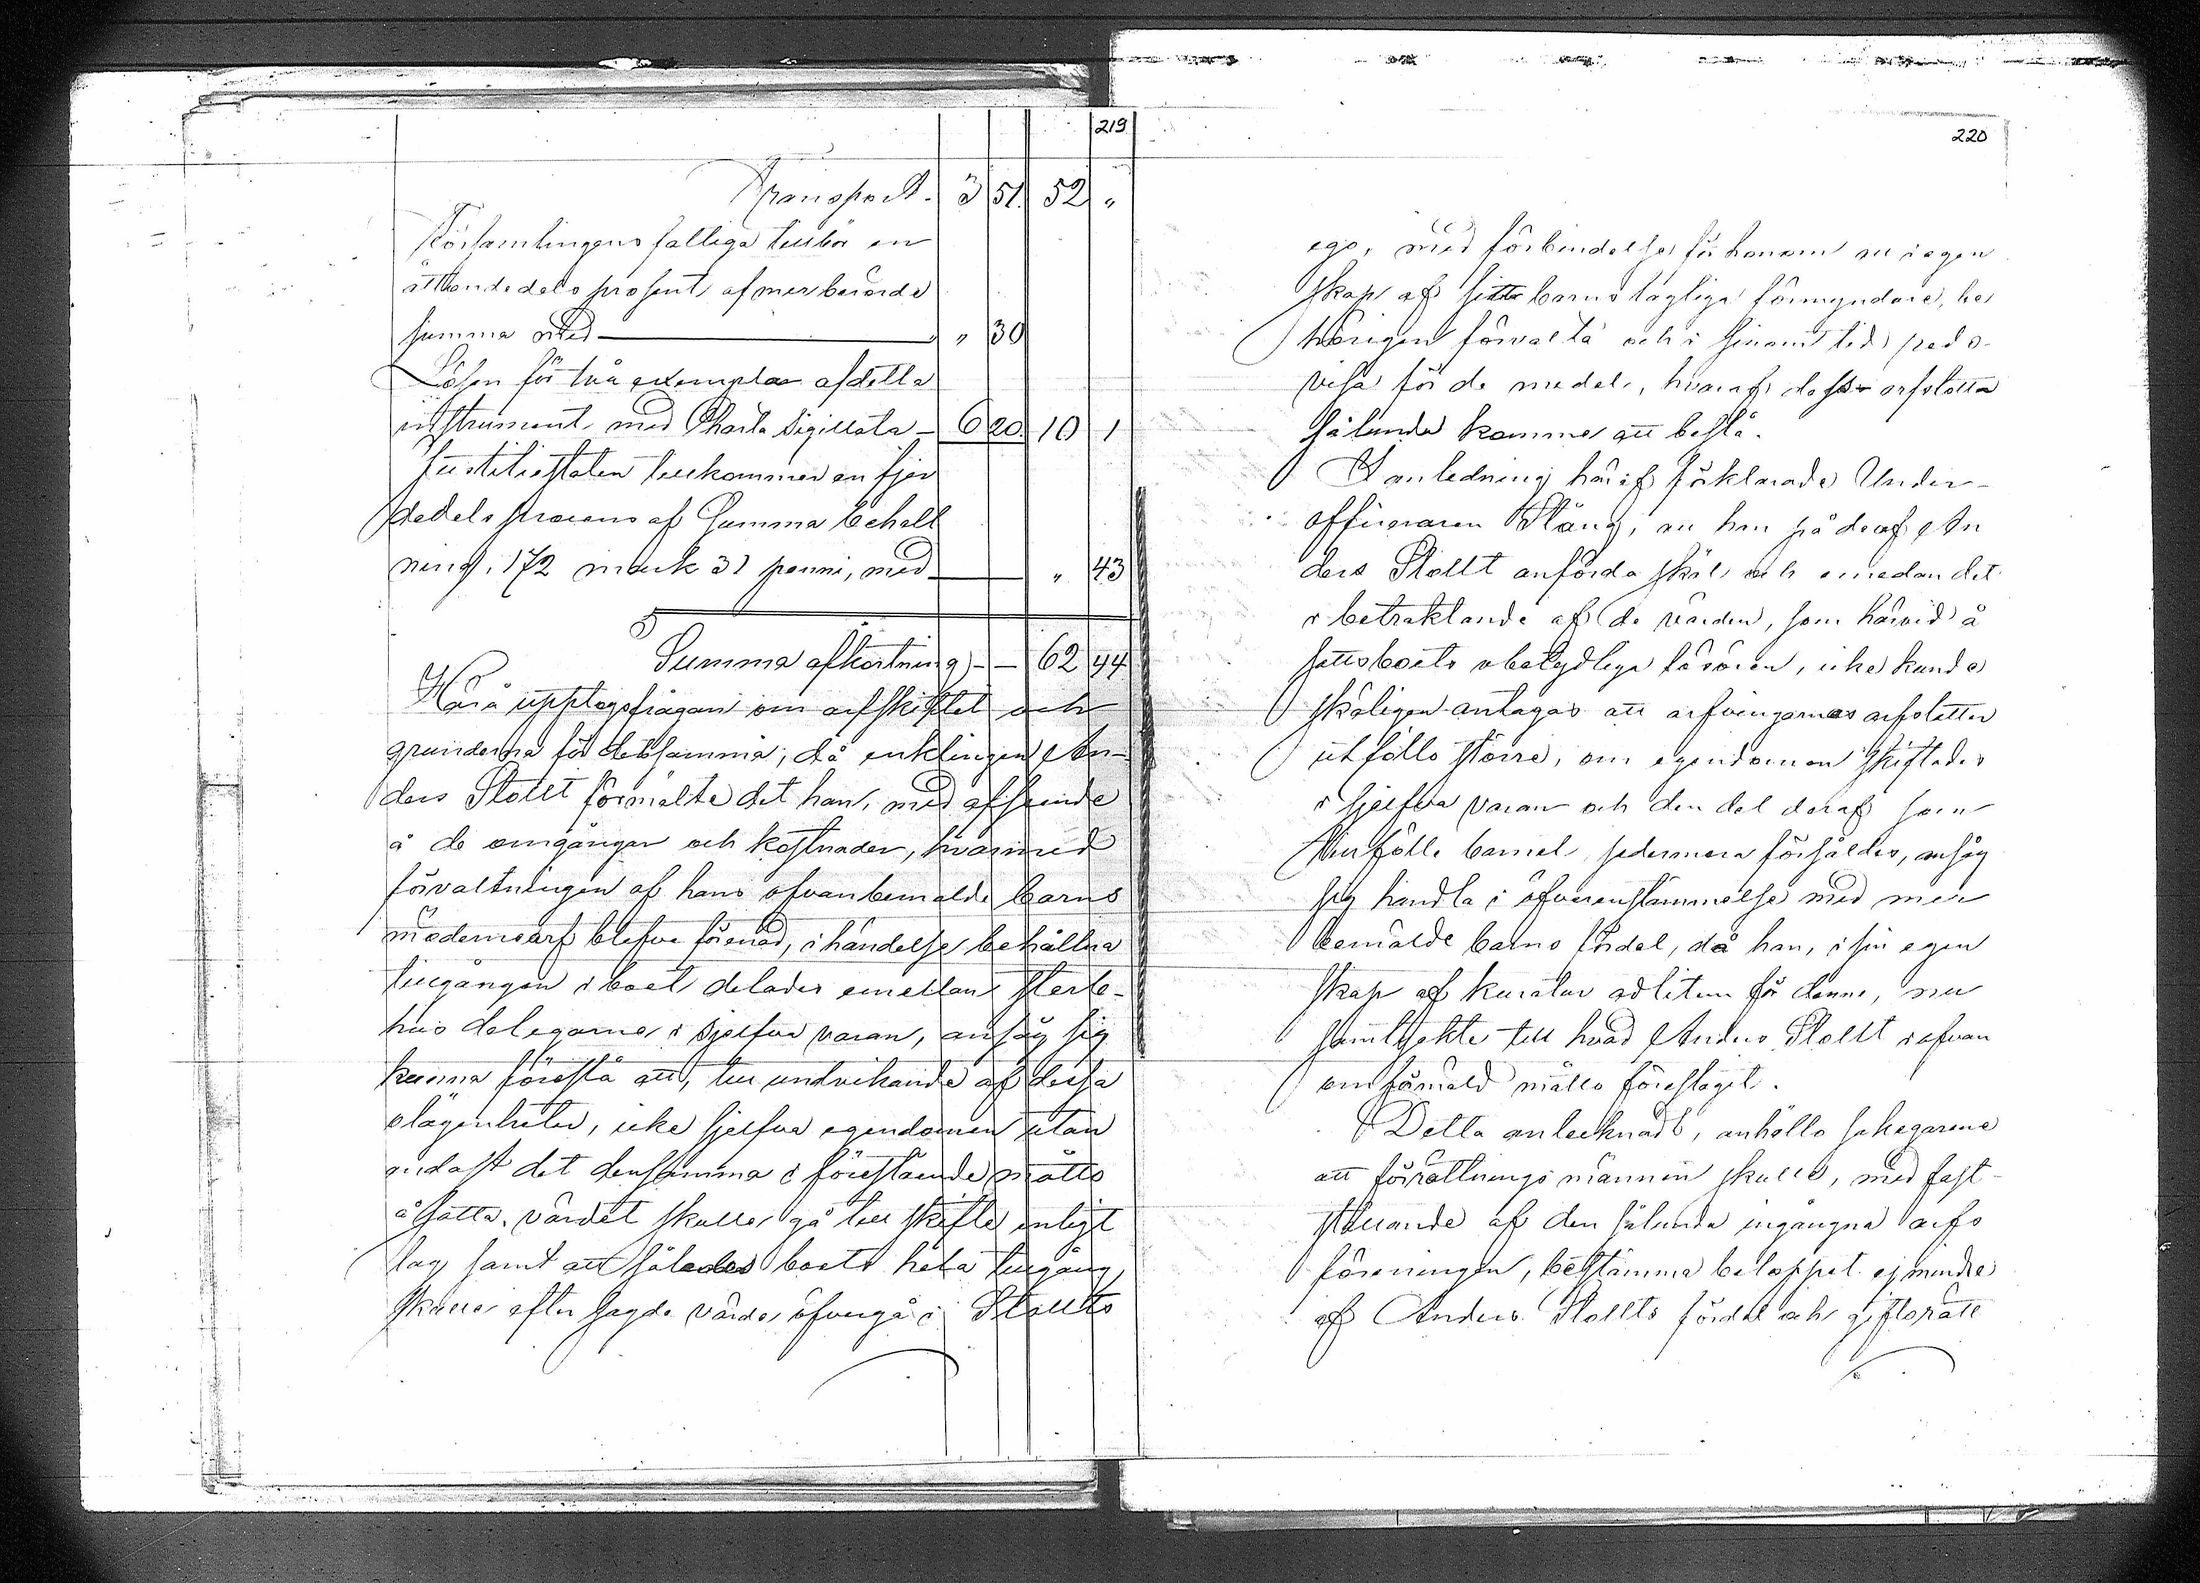 219
Transport. 3 51. 52 "
Församlingens fattiga tillkör en
åttondedels prosent af merberörde
summa med " 30
Lösen för två exemplar af detta
instrument med Charta Sigillata 6 20. 10 1
Justitiestaten tillkommer en fjer
dedels procens af Summa behåll
ning, 172 mark 31 penni, med " 43
Summa afkortning - - 62 44
Härå upptogs frågan om arfskiftet och
grunderna för detsamma, då enklingen An-
ders Stollt förmälte det han, med afseende
å de omgångar och kostnader, hvarmed
förvaltningen af hans ofvanbemälde barns
mödernearf blefve förenad, i händelse behållna
tillgången i boet delades emellan sterb-
hus delegarne i sjelfva varan, ansåg sig
kunna föreslå att, till undvikande af dessa
olägenheter, icke sjelfva egendomen utan
endast det densamma i förestående måtto
åsatta värdet skulle gå till skifte enligt
lag samt att således boets hela tillgång
skulle efter sagde värde öfvergå i Stollts
220
ego, med förbindelse för honom att i egen
skap af sitt barns laglige förmyndare, be
hörigen förvalta och i sinom tid redo-
visa för de medel, hvaraf dess arfslotter
sålunda komme att bestå.
I anledning häraf förklarade Under-
officeraren Stäng, att han på de af An
ders Stollt anförda skäl och emedan det
i betraktande af de värden, som härvid å
satts boets obetydliga lösören, icke kunde
skäligen antagas att arfvingarnas arfslotter
utfölle större, om egendomen skiftades
i sjelfva varan och den del deraf som
tillfölle barnet sedermera försåldes, ansåg
sig handla i öfverensstämmelse med mer
bemälde barns fördel, då han, i sin egen
skap af kurator adlitem för denne, nu
samtyckte till hvad Anders Stollt i ofvan
omförmäld måtto föreslagit.
Detta antecknadt, anhöllo sakegarene
att förrättningsmännen skulle, med fast-
ställande af den sålunda ingångna arfs
föreningen, bestämma beloppet ej mindre
af Anders Stollts fördel och giftorätt